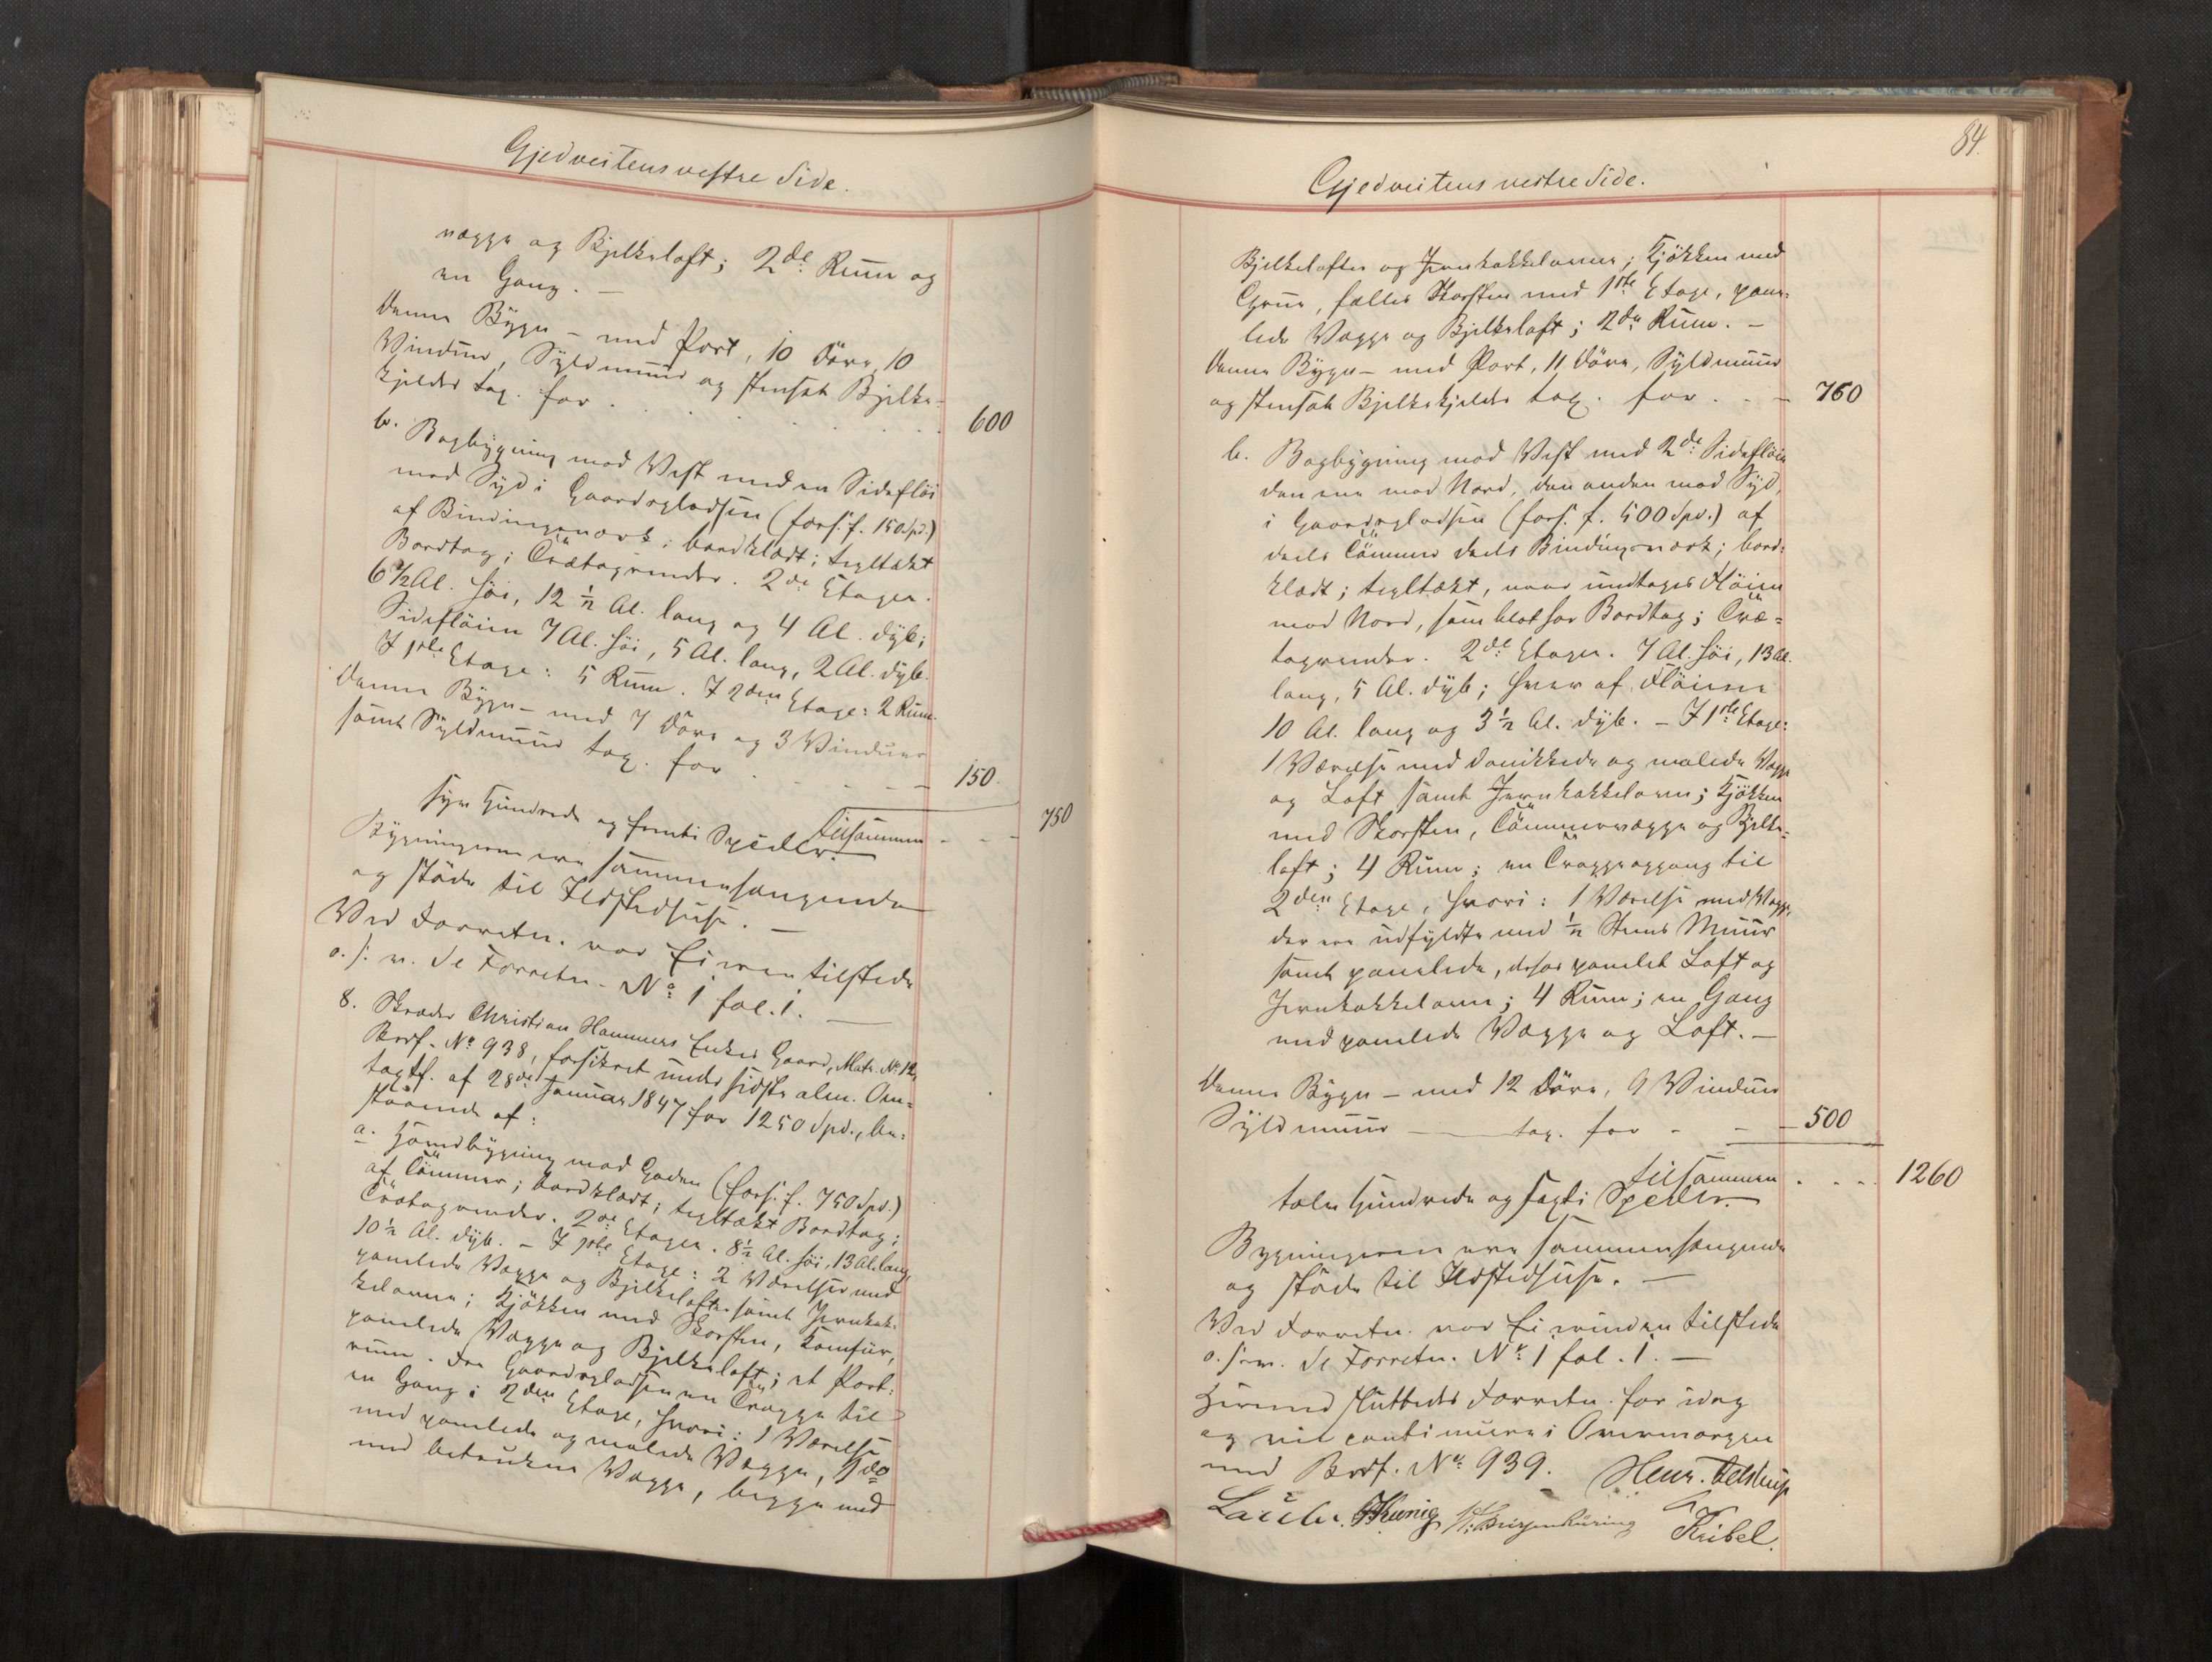 Gjedveitens vestre Side.
vægge og Bjelkeloft; 2de Rum og
en Gang. —
denne Bygn – med Port, 10 Döre, 10
Vinduer, Syldmuur og stensat Bjelke-
kjelder tax. for . . . . . . 600
b. Bagbygning mod Vest med en Sideflöi
mod Syd i Gaardspladsen (fors. f. 150 Spd.)
af Bindingsværk; bordklædt; tegltækt
Bordtag; Trætagrender. 2de Etager.
6 1/2 Al. höi, 12 1/2 Al. lang og 4 Al. dyb;
Sideflöien 7 Al. höi, 5 Al. lang, 2 Al. dyb.
I 1ste Etage: 5 Rum. I 2den Etage: 2 Rum.
denne Bygn – med 7 Döre og 3 Vinduer
samt Syldmuur tax. for . - - - 150.
Tilsammen - - - 750
syv Hundrede og femti Specdlr.
Bygningerne ere sammenhængende
og stöde til Ildstedhuse. —
Ved Forretn. var Eieren tilstede
o. s. v. se Forretn. No 1 fol. 1. —
8. Skræder Christian Hammers Enkes Gaard, Matr. No 12,
Brdf. No 938, forsikret under sidste alm. Om-
taxtf. af 28de Januar 1847 for 1250 Spd., be-
staaende af:
a. Hovedbygning mod Gaden (fors. f. 750 Spd.)
af Tömmer; bordklædt; tegltækt Bordtag;
Trætagrender. 2de Etager. 8 1/2 Al. höi, 13 Al. lang,
10 1/2 Al. dyb. – I 1ste Etage: 2 Værelser med
panelede Vægge og Bjelkelofter samt Jernkak-
kelovne; Kjökken med Skorsten, Komfur,
panelede Vægge og Bjelkeloft; et Port-
rum. Fra Gaardspladsen en Trappe til
en Gang i 2den Etage, hvori: 1 Værelse
med panelede og malede Vægge, 1 do
med betrukne Vægge, begge med
84.
Gjedveitens vestre Side.
Bjelkelofter og Jernkakkelovne; Kjökken med
Grue, fælles Skorsten med 1ste Etage, pane-
lede Vægge og Bjelkeloft; 2de Rum. –
denne Bygn – med Port, 11 Döre, Syldmuur
og stensat Bjelkekjelder tax. for . . – 760
b. Bagbygning mod Vest med 2de Sideflöie
den ene mod Nord, den anden mod Syd,
i Gaardspladsen (fors. f. 500 Spd.) af
deels Tömmer deels Bindingsværk; bord-
klædt; tegltækt, naar undtages Flöien
mod Nord, som blot har Bordtag; Træ-
tagrender. 2de Etager. 7 Al. höi, 13 Al.
lang, 5 Al. dyb; hver af Flöiene
10 Al. lang og 3 1/2 Al. dyb. – I 1ste Etage:
1 Værelse med panelede og malede Vægge
og Loft samt Jernkakkelovn; Kjökken
med Skorsten, Tömmervægge og Bjelke-
loft; 4 Rum; en Trappeopgang til
2den Etage, hvori: 1 Værelse med Vægge,
der ere udfyldte med 1/2 Stens Muur
samt panelede, dehar panelet Loft og
Jernkakkelovn; 4 Rum; en Gang
med panelede Vægge og Loft. –
denne Bygn – med 12 Döre, 9 Vinduer
Syldmuur — tax. for - - – 500
Tilsammen . . . . 1260
tolv Hundrede og sexti Specdlr.
Bygningerne ere sammenhængende
og stöde til Ildstedhuse. —
Ved Forretn. var Eierinden tilstede
o. s. v. se Forretn. No 1 fol. 1. —
Hermed sluttedes Forretn. for idag
og vil continuere i Overmorgen
med Brdf. No 939. Henr. Helstrup
Kribel.